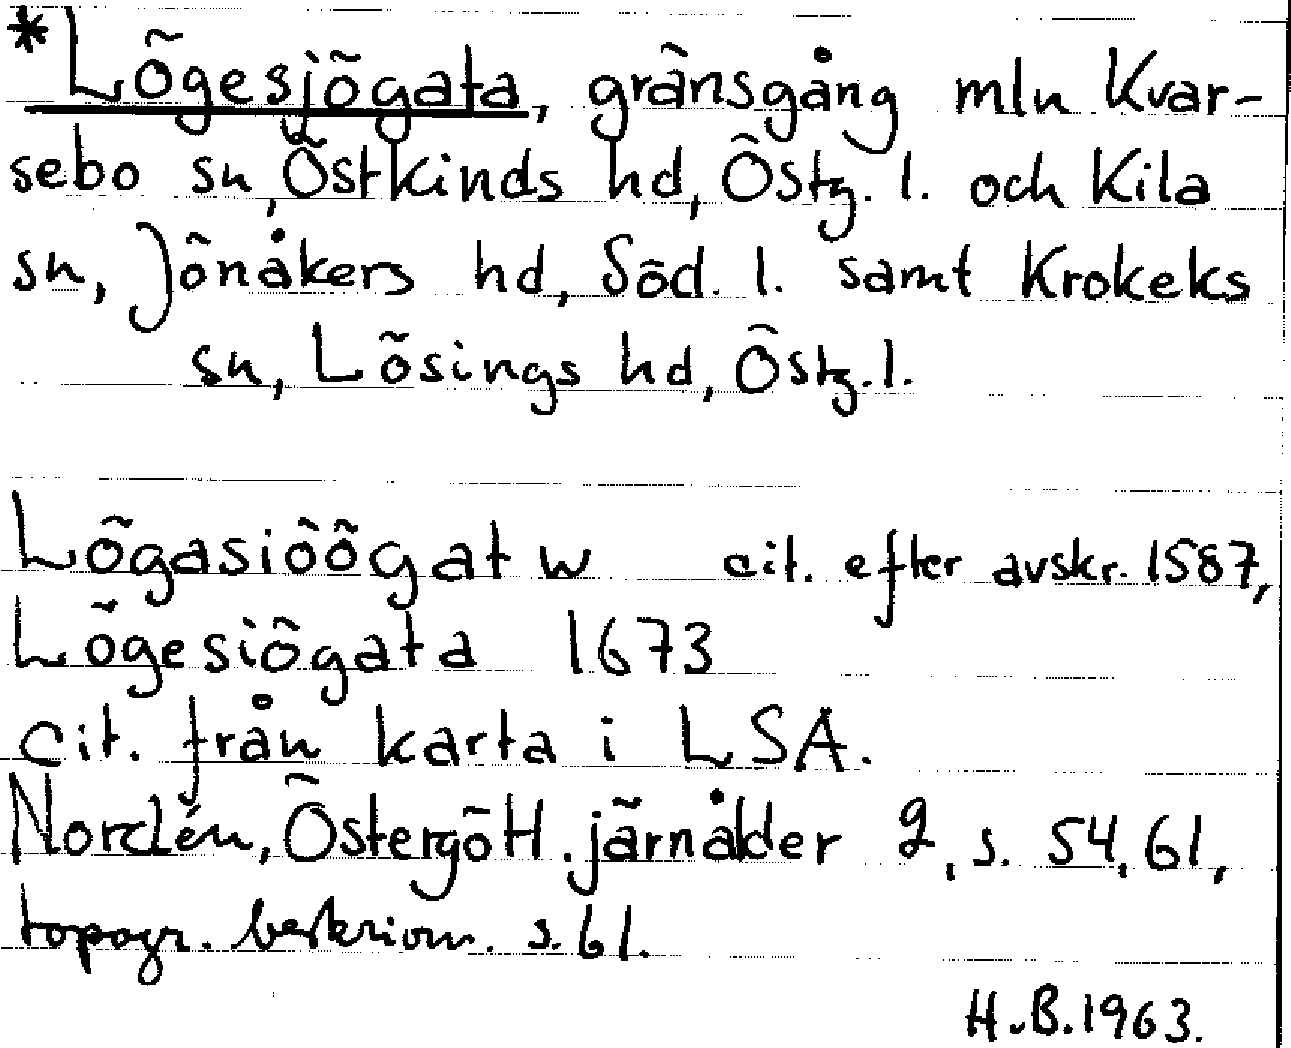 *Lögesjögata, gränsgång mln Kvar-
sebo sn, Östkinds hd, Östg. l. och Kila
sn, Jönåkers hd, Söd. l. samt Krokeks
sn, Lösings hd, Östg. l.
Lögasiöögatw cit. efter avskr. 1587,
Lögesiögata 1673
cit. från karta i LSA.
Nordén, Östergötl. järnålder 2, s. 54, 61,
topogr. beskrivn. s. 61.
H.B. 1963.